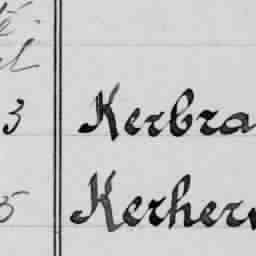 3 Kerbra
5 Kerher